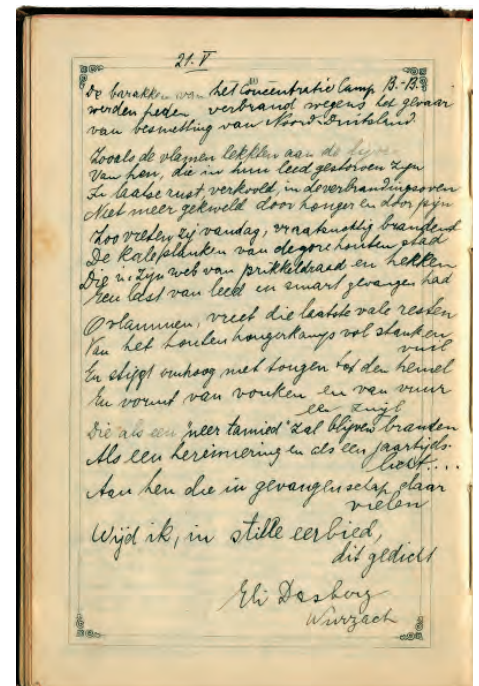 21. V
De barakken van het Concentratie Camp B.-B.
werden heden verbrand wegens het gevaar
van besmetting van Noord-Duitsland
Zooals de vlammen lekten aan de
Van hen, die in hun leed gestorven zijn
In laatste rust, verkoold, in de verbrandingsoven
Niet meer gekweld door honger en door pijn
Zoo vreten zij vandaag, vraatzuchtig brandend
De kale planken van de gore houten stad
Die in zijn web van prikkeldraad en hekken
Een last van leed en smart gevangen had
O vlammen, vreet die laatste vale resten
Van het houten hongerkamp vol stank en
vuil
En stijgt omhoog met tongen tot den hemel
En vormt van vonken en van vuur
een zuil
Die als een "neer tamied" zal blijven branden
Als een herinnering en als een jaartijds-
licht....
Aan hen die in gevangenschap daar
vielen
Wijd ik, in stille eerbied,
dit gedicht
Eli Dasberg
Wurzach